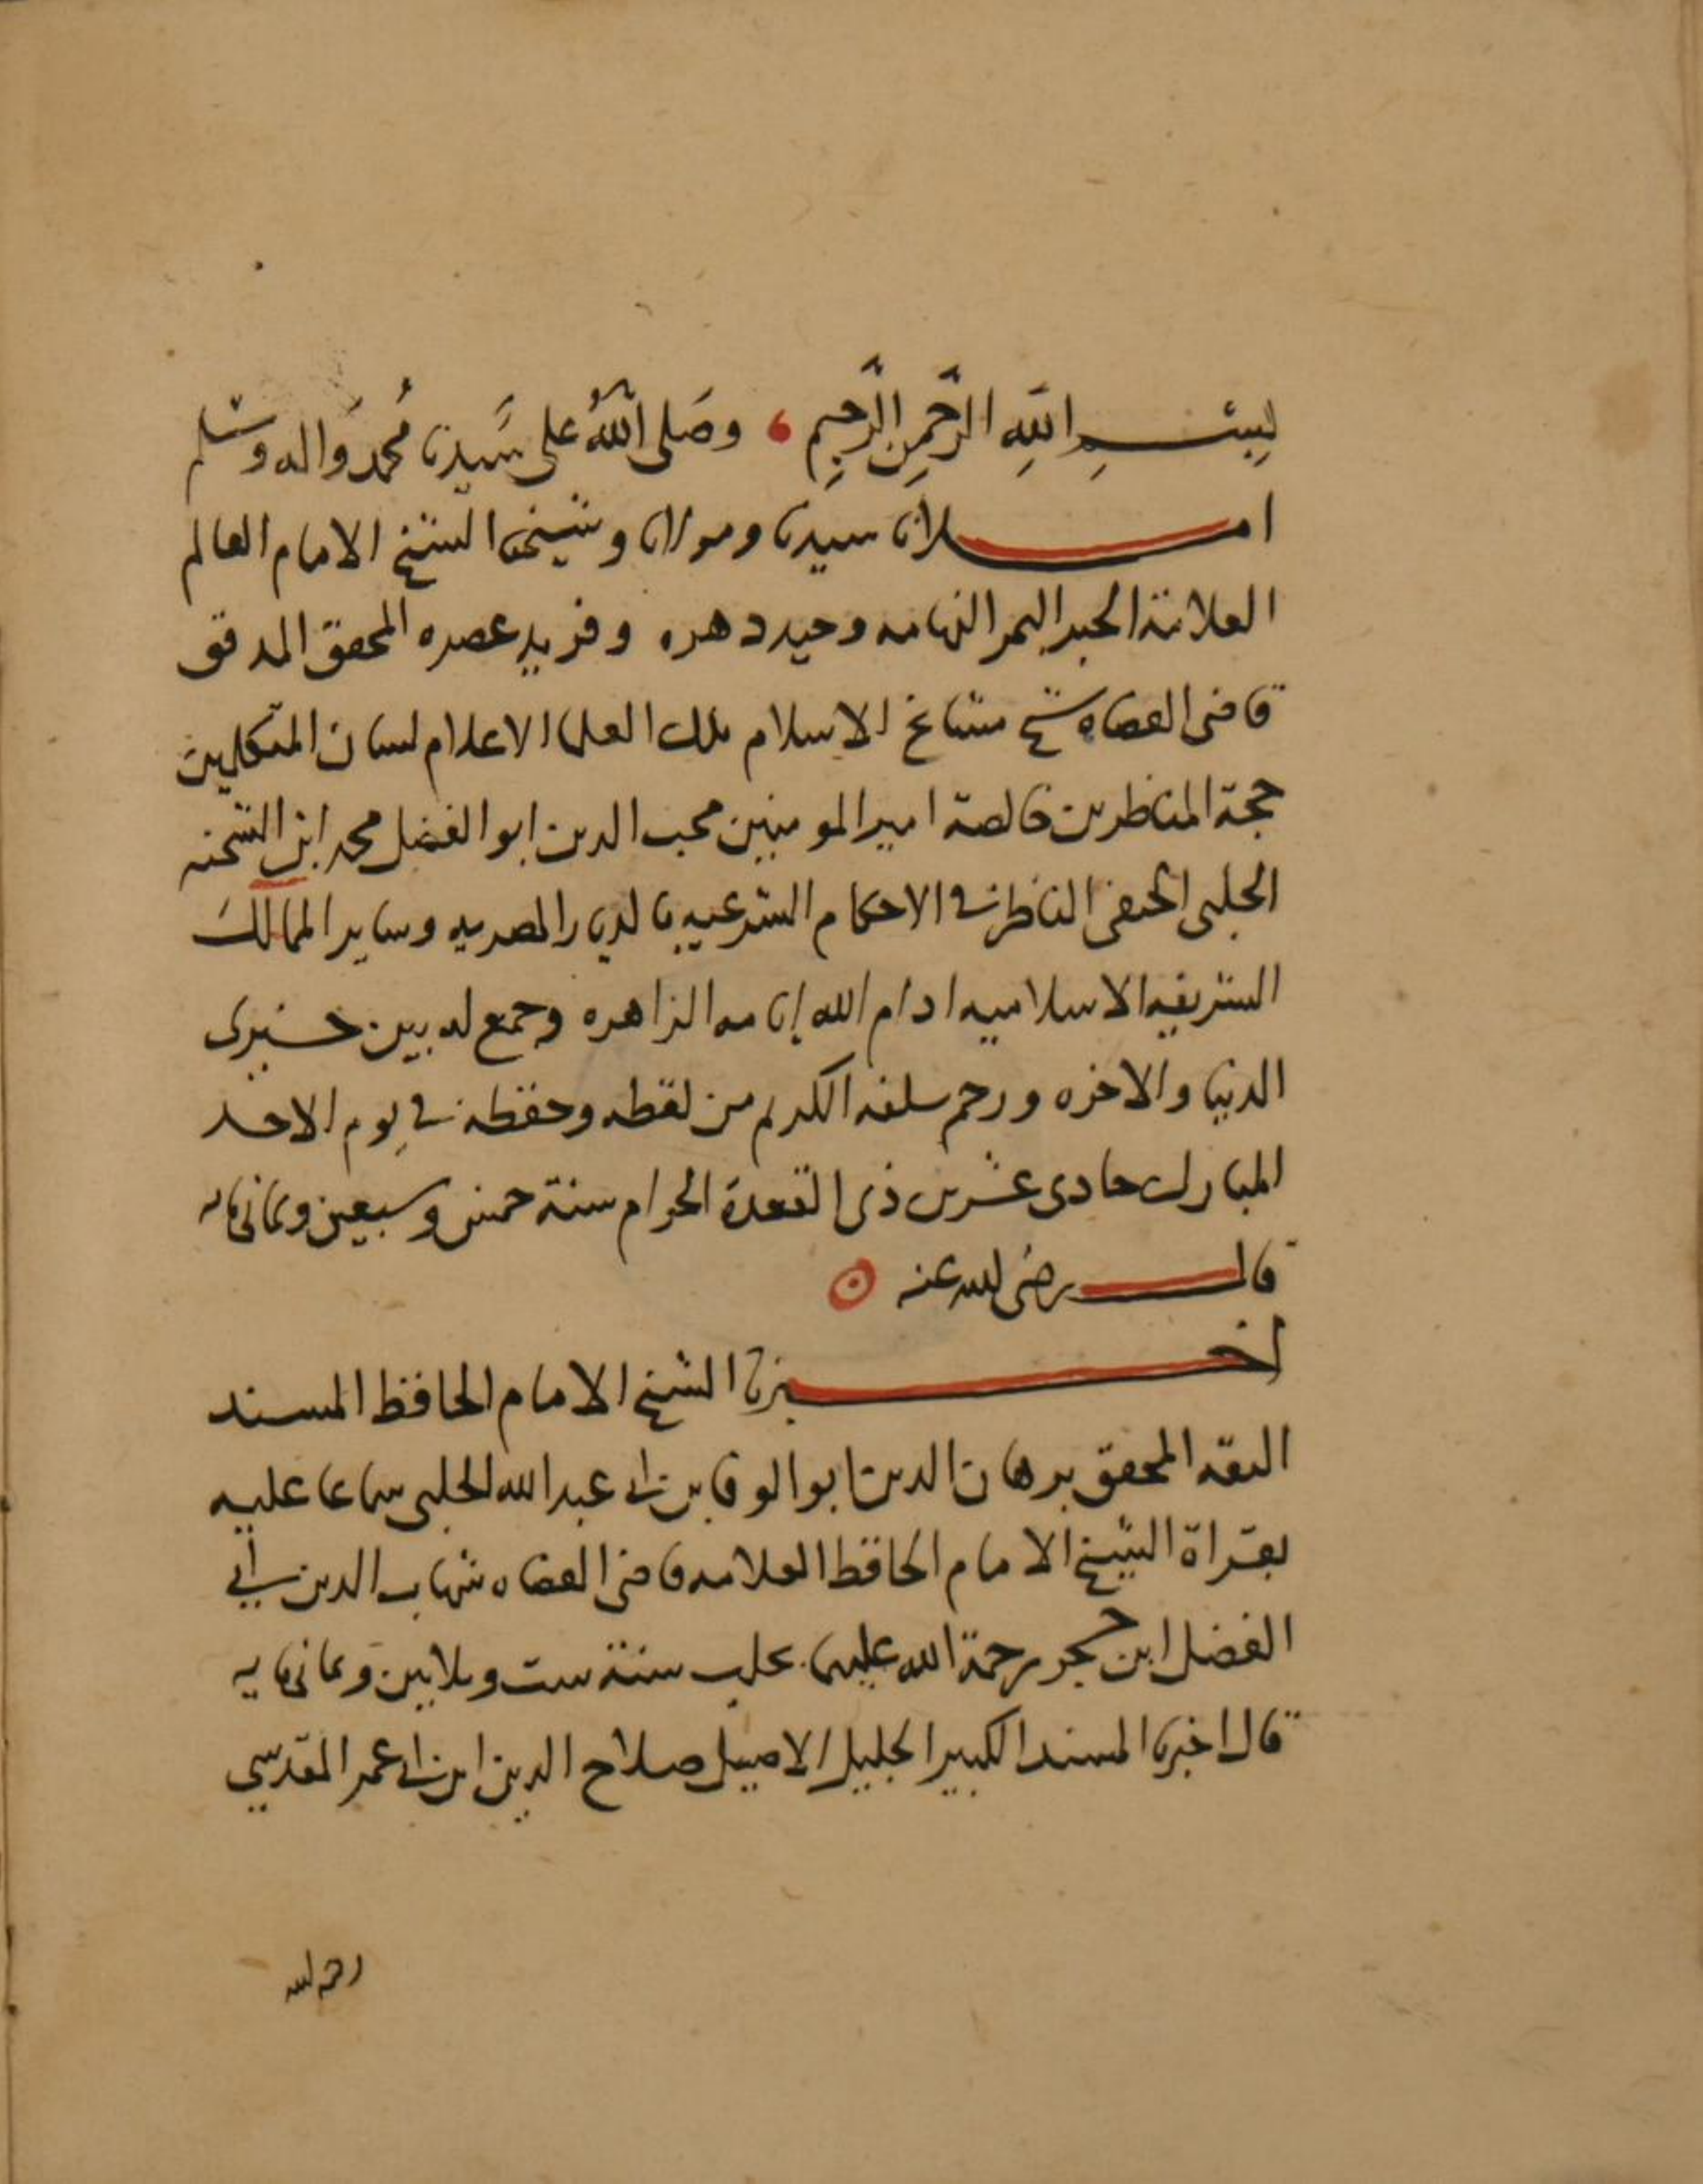 بِسْمِ اللَّهِ الرَّحْمَنِ الرَّحِيمِ وصَلى اللهُ على سَيدنا مُحمد واله وسلم
املانا سيدنا ومولانا وشيخنا الشيخ الامام العالم
العلامة الحبر البحر الفهامه وحيد دهره وفريد عصره المحقق المدقق
قاضى القضاه شيخ مشايخ الاسلام ملك العلما الاعلام لسان المتكلمين
حجة المناظرين خالصة امير المومنين محب الدين ابو الفضل محمد ابن الشحنه
الحلبى الحنفى الناظر فى الاحكام الشرعيه بالديار المصريه وساير الممالك
الشريفه الاسلاميه ادام الله ايامه الزاهره وجمع له بين خيرى
الدنيا والاخره ورحم سلفه الكريم من لفظه وحفظه فى يوم الاحد
المبارك حادى عشرين ذى القعدة الحرام سنة خمس وسبعين وثمانمايه
قال رضى الله عنه
اخبرنا الشيخ الامام الحافظ المسند
الثقه المحقق برهان الدين ابو الوفا بن ابى عبد الله الحلبى سماعا عليه
بقراة الشيخ الامام الحافظ العلامه قاضى القضاه شهاب الدين ابي
الفضل ابن حجر رحمة الله عليهما بحلب سنة ست وثلاثين وثمانمايه
قال اخبرنا المسند الكبير الجليل الاصيل صلاح الدين ابن ابى عمر المقدسي
رحمه الله